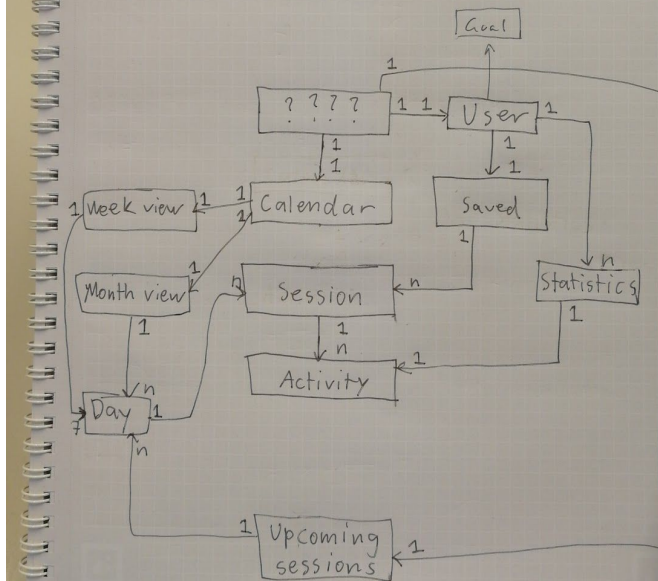 Goal
1
? ? ? ?
1 1
User
1
1
1
1
1
1
Week view
1
1
1
Calendar
Saved
1
1
n
Month view
n
Session
n
Statistics
1
1
n
1
1
Activity
Day
1
n
7
n
1
Upcoming
sessions
1